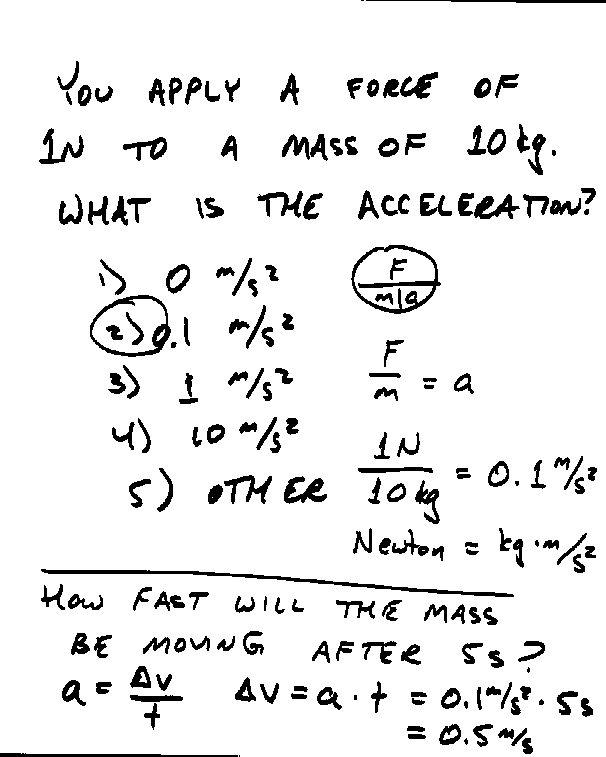 YOU APPLY A FORCE OF
1N TO A MASS OF 10 kg.
WHAT IS THE ACCELERATION?
1) 0 m/s²
2) 0.1 m/s²
3) 1 m/s²
4) 10 m/s²
5) OTHER
F
m|a
F/m = a
1N/10 kg = 0.1 m/s²
Newton = kg·m/s²
HOW FAST WILL THE MASS
BE MOVING AFTER 5s?
a = Δv/t Δv = a · t = 0.1 m/s² · 5s
= 0.5 m/s